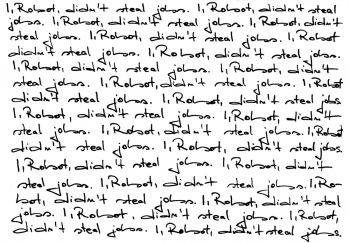 I, Robot, didn't steal jobs. I, Robot, didn't steal
jobs. I, Robot, didn't steal jobs. I, Robot, didn't
steal jobs. I, Robot, didn't steal jobs. I, Robot
didn't steal jobs. I, Robot, didn't steal jobs.
I, Robot, didn't steal jobs. I, Robot, didn't
steal jobs. I, Robot, didn't steal jobs. I, Robot
didn't steal jobs. I, Robot, didn't steal jobs
I, Robot, didn't steal jobs. I, Robot, didn't
steal jobs. I, Robot, didn't steal jobs. I, Robot
didn't steal jobs. I, Robot, didn't steal jobs.
I, Robot, didn't steal jobs. I, Robot, didn't
steal jobs. I, Robot, didn't steal jobs. I, Ro-
bot, didn't steal jobs. I, Robot, didn't steal
jobs. I, Robot, didn't steal jobs. I, Robot,
didn't steal jobs. I, Robot, didn't steal jobs.